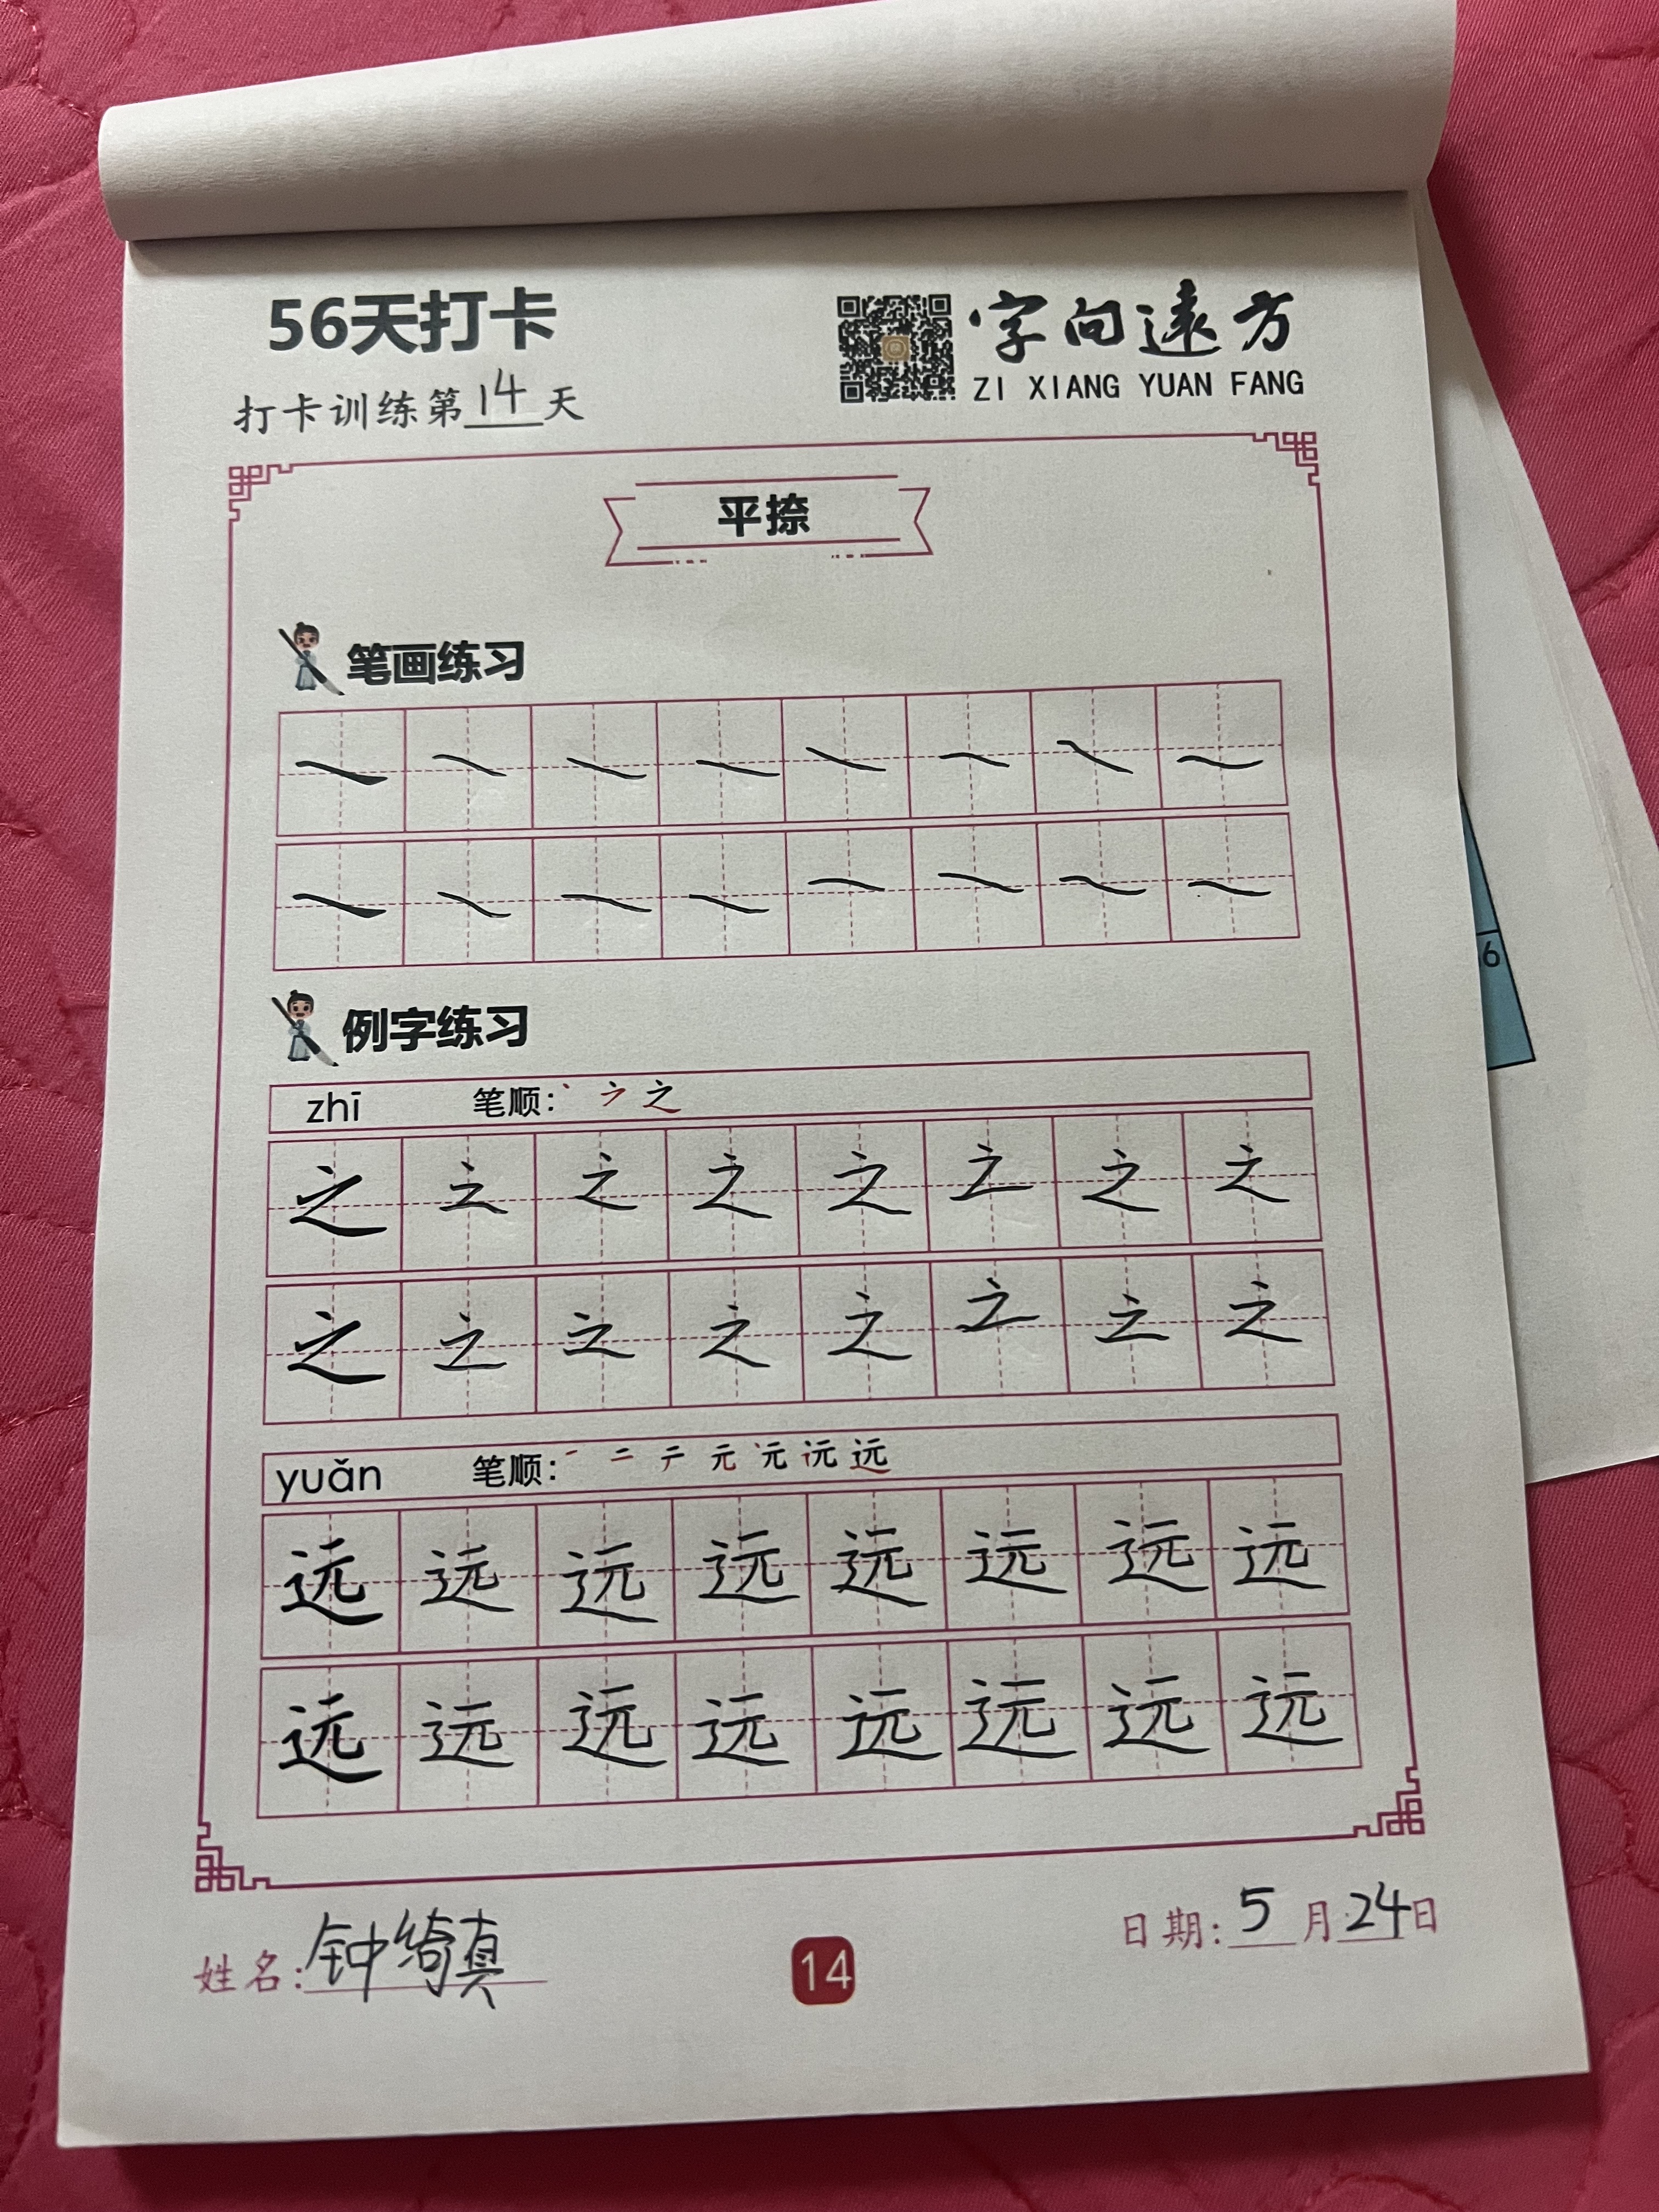 56天打卡
字向远方
ZI XIANG YUAN FANG
打卡训练第14天
平捺
笔画练习
例字练习
zhī 笔顺：丶 ㇇ 之
之 之 之 之 之 之 之 之
之 之 之 之 之 之 之 之
yuǎn 笔顺：一 二 テ 元 远
远 远 远 远 远 远 远 远
远 远 远 远 远 远 远 远
姓名：钟绮真
14
日期：5月24日
6